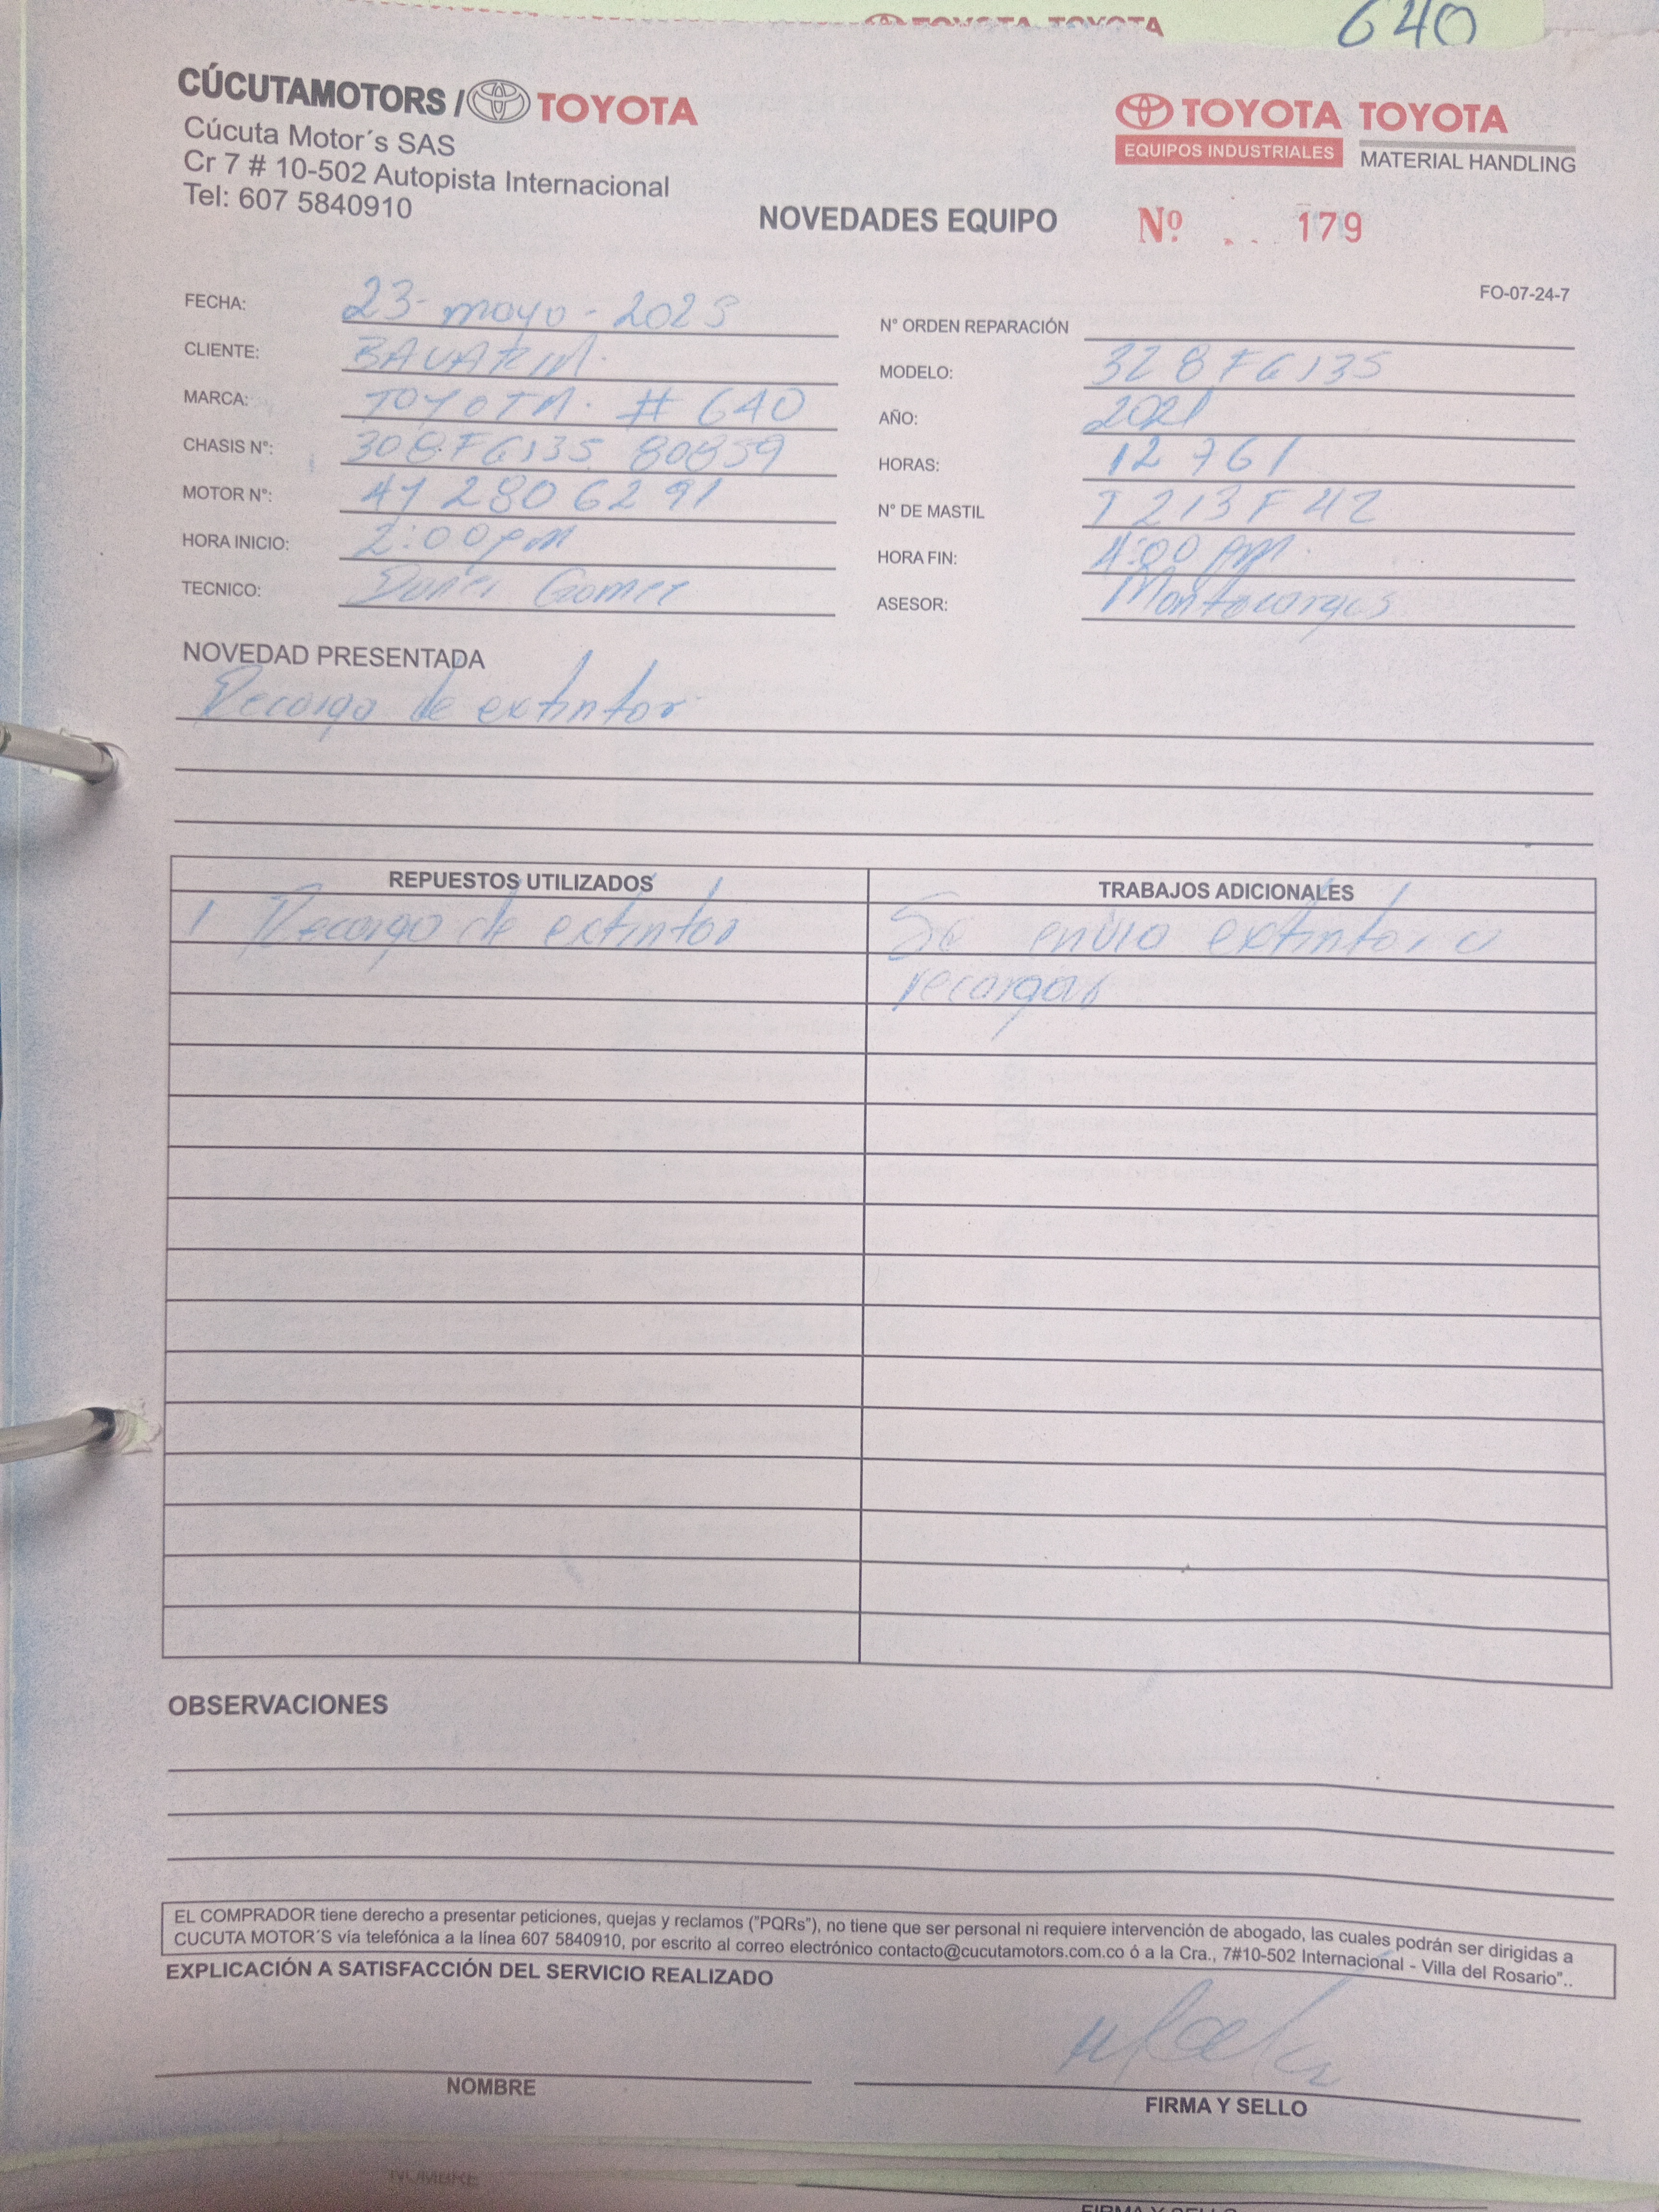 640
CÚCUTAMOTORS / TOYOTA
Cúcuta Motor´s SAS
Cr 7 # 10-502 Autopista Internacional
Tel: 607 5840910
TOYOTA
EQUIPOS INDUSTRIALES
TOYOTA
MATERIAL HANDLING
NOVEDADES EQUIPO
Nº 179
FO-07-24-7
FECHA: 23-mayo-2023
N° ORDEN REPARACIÓN
CLIENTE: BAVARIA.
MODELO: 328FGJ35
MARCA: TOYOTA. # 640
AÑO: 2021
CHASIS N°: 308FGJ35 80859
HORAS: 12761
MOTOR N°: 4Y2806291
N° DE MASTIL
HORA INICIO: 2:00pm
HORA FIN: 4:00 PM.
TECNICO: Gomez
ASESOR: Montacargas
NOVEDAD PRESENTADA
Recarga de extintor
REPUESTOS UTILIZADOS
TRABAJOS ADICIONALES
1 Recarga de extintor
Se envia extintor a
recargar
OBSERVACIONES
EL COMPRADOR tiene derecho a presentar peticiones, quejas y reclamos ("PQRs"), no tiene que ser personal ni requiere intervención de abogado, las cuales podrán ser dirigidas a
CUCUTA MOTOR´S vía telefónica a la línea 607 5840910, por escrito al correo electrónico contacto@cucutamotors.com.co ó a la Cra., 7#10-502 Internacional - Villa del Rosario"..
EXPLICACIÓN A SATISFACCIÓN DEL SERVICIO REALIZADO
NOMBRE
FIRMA Y SELLO
NOMBRE
FIRMA Y SELLO